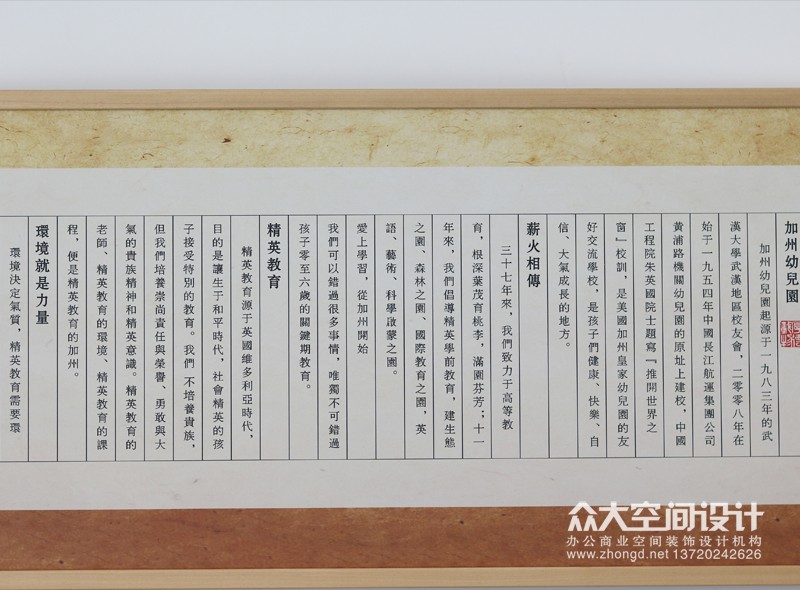 加州幼兒園
加州幼兒園起源于一九八三年的武
漢大學武漢地區校友會，二零零八年在
始于一九五四年中國長江航運集團公司
黃浦路機關幼兒園的原址上建校，中國
工程院朱英國院士題寫『推開世界之
窗』校訓，是美國加州皇家幼兒園的友
好交流學校，是孩子們健康、快樂、自
信、大氣成長的地方。
薪火相傳
三十七年來，我們致力于高等教
育，根深葉茂育桃李，滿園芬芳；十一
年來，我們倡導精英學前教育，建生態
之園、森林之園、國際教育之園，英
語、藝術、科學啟蒙之園。
愛上學習，從加州開始
我們可以錯過很多事情，唯獨不可錯過
孩子零至六歲的關鍵期教育。
精英教育
精英教育源于英國維多利亞時代，
目的是讓生于和平時代，社會精英的孩
子接受特別的教育。我們不培養貴族，
但我們培養崇尚責任與榮譽、勇敢與大
氣的貴族精神和精英意識。精英教育的
老師、精英教育的環境、精英教育的課
程，便是精英教育的加州。
環境就是力量
環境決定氣質，精英教育需要環
众大空间设计
办公商业空间装饰设计机构
www.zhongd.net 13720242626